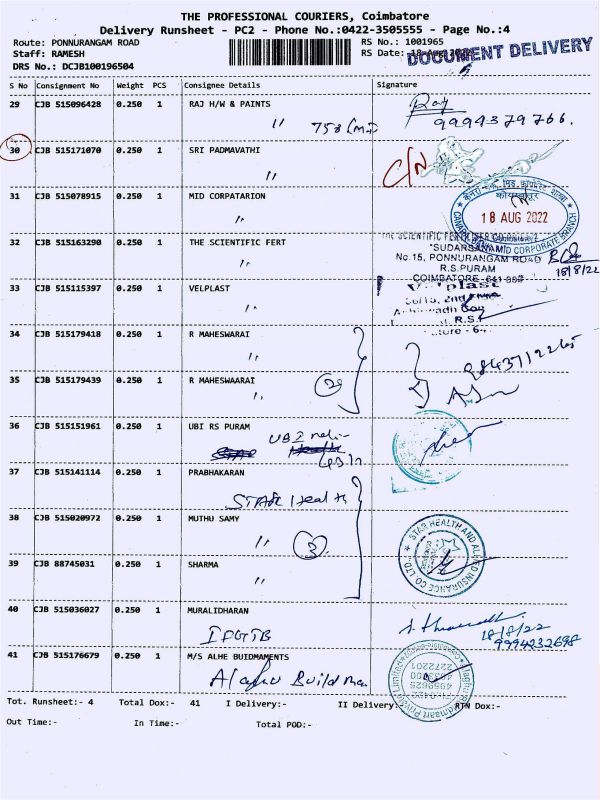 THE PROFESSIONAL COURIERS, Coimbatore
Delivery Runsheet - PC2 - Phone No.:0422-3505555 - Page No.:4
Route: PONNURANGAM ROAD
RS No.: 1001965
Staff: RAMESH
RS Date:
DOCUMENT DELIVERY
DRS No.: DCJB100196504
S No Consignment No Weight PCS Consignee Details Signature
29 CJB 515096428 0.250 1 RAJ H/W & PAINTS
" 9994379766.
30 CJB 515171070 0.250 1 SRI PADMAVATHI
" C/N
31 CJB 515078915 0.250 1 MID CORPATARION
"
18 AUG 2022
32 CJB 515163290 0.250 1 THE SCIENTIFIC FERT
"
"SUDARSANAM"
No.15, PONNURANGAM ROAD
R.S.PURAM
COIMBATORE
18/8/22
33 CJB 515115397 0.250 1 VELPLAST
"
34 CJB 515179418 0.250 1 R MAHESWARAI
"
35 CJB 515179439 0.250 1 R MAHESWAARAI
"
36 CJB 515151961 0.250 1 UBI RS PURAM
UBI
37 CJB 515141114 0.250 1 PRABHAKARAN
STAR Health
38 CJB 515020972 0.250 1 MUTHU SAMY
" 3
STAR HEALTH AND ALLIED INSURANCE CO LTD
39 CJB 88745031 0.250 1 SHARMA
"
40 CJB 515036027 0.250 1 MURALIDHARAN
IFGTB
18/8/22
9994232698
41 CJB 515176679 0.250 1 M/S ALHE BUIDMAMENTS
Tot. Runsheet:- 4 Total Dox:- 41 I Delivery:- II Delivery:- RTN Dox:-
Out Time:- In Time:- Total POD:-